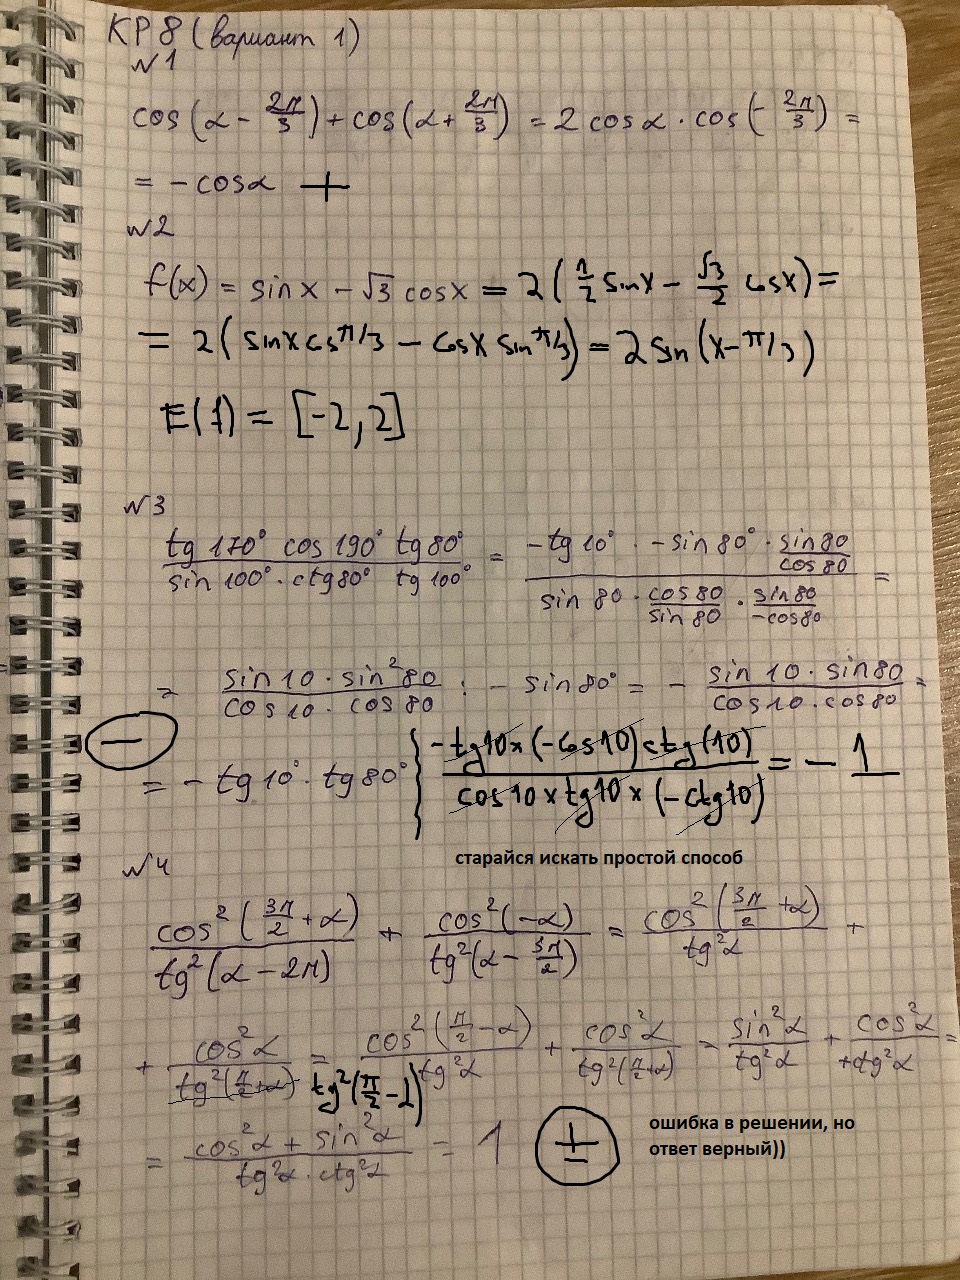 КР 8 (вариант 1)
№1
cos(α - 2π/3) + cos(α + 2π/3) = 2 cosα · cos(- 2π/3) =
= - cosα +
№2
f(x) = sin x - √3 cosx = 2(1/2 sinx - √3/2 cosx) =
= 2(sinx cosπ/3 - cosx sinπ/3) = 2 sin(x-π/3)
E(f) = [-2, 2]
№3
tg 170° cos 190° tg 80° / sin 100° · ctg 80° tg 100° = -tg 10° · -sin 80° · sin 80/cos 80 / sin 80 · cos 80/sin 80 · sin 80/-cos 80 =
= sin 10 · sin²80 / cos 10 · cos 80 : - sin 80° = - sin 10 · sin 80 / cos 10 · cos 80 =
−
= - tg 10° · tg 80° { -tg10 × (-cos10) ctg(10) / cos10 × tg10 × (-ctg10) = - 1
старайся искать простой способ
№4
cos²(3π/2 + α) / tg²(α - 2π) + cos²(-α) / tg²(α - 3π/2) = cos²(3π/2 + α) / tg²α +
+ cos²α / tg²(π/2 + α) = cos²(π/2 - α) / tg²α + cos²α / tg²(π/2 + α) = sin²α / tg²α + cos²α / +ctg²α =
tg²(π/2 - α)
= cos²α + sin²α / tg²α · ctg²α = 1 ±
ошибка в решении, но
ответ верный))